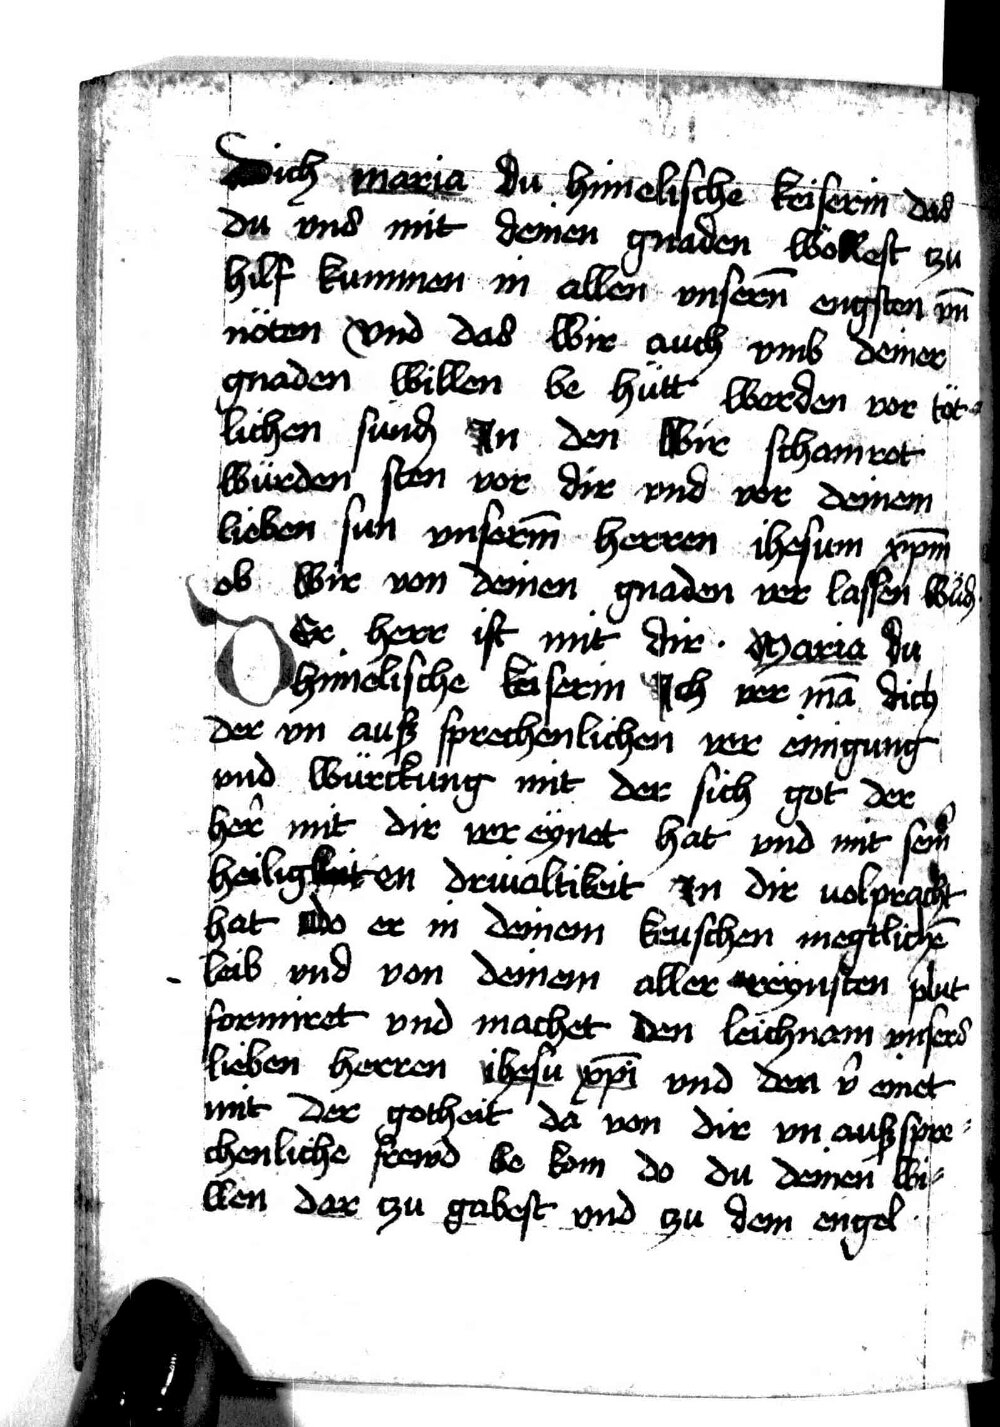 Dich maria du himelische keiserin das
du vns mit deinen gnaden wöllest tzu
hilf kummen in allen vnsern̄ engsten vn̄
nöten Vnd das wir auch vmb deiner
gnaden willen be hütt werden vor töt-
lichen sünd In den wir schamrot
würden sten vor dir vnd vor deinem
lieben sun vnserm̄ herren ihesum xpm̄
ob wir von deinen gnaden ver lassen
Der herr ist mit dir · Maria du
himelische keiserin Ich ver mā dich
der vn auß sprechenlichen ver einigung
vnd würckung mit der sich got der
her̄ mit dir ver eynet hat vnd mit sein̄
heiligkeiten driualtikeit In dir volpracht
hat Do er in deinem keuschen megtlichē
leib vnd von deinem aller reynsten plut
formiret vnd machet den leichnam vnsers
lieben herren ihesu xp̄i vnd den v̄ einet
mit der gotheit da von dir vn außspre-
chenliche frewd be kom do du deinen wi-
llen dar tzu gabest vnd tzu dem engel